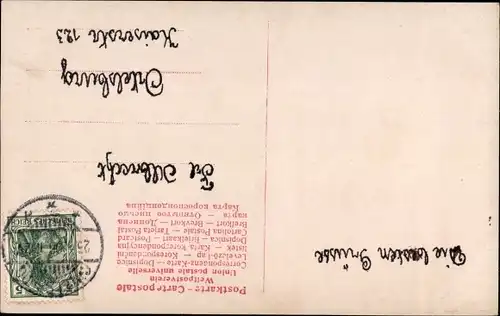 Postkarte — Carte postale
Weltpostverein
Union postale universelle
Correspondenz-Karte — Dopisnice
Levelező-lap — Korespondenční
lístek — Karta korespondencyjna
Dopisnica — Briefkaart — Postcard
Cartolina Postale — Tarjeta Postal
Brefkort — Brevkort — Дописна
карта — Открытое письмо
Карта кореспонденційна
Frl. Albrecht
Ortelsburg
Kaiserstr 123
Die besten Grüsse
5